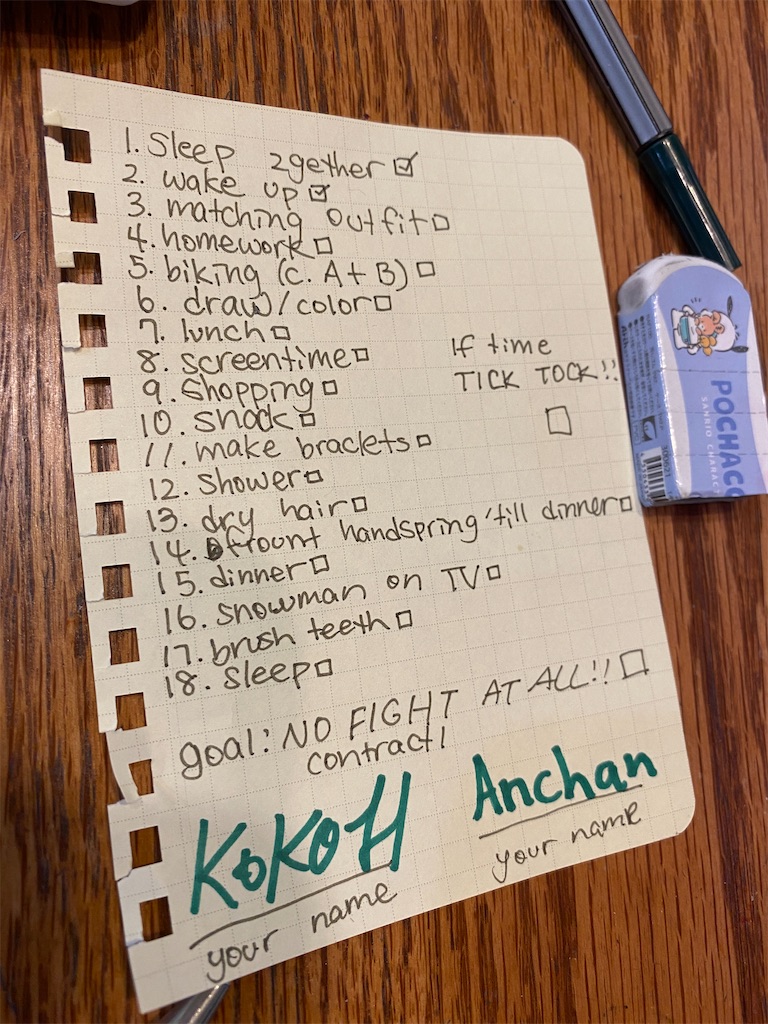 1. Sleep 2gether ☑
2. wake up ☑
3. matching outfit ☐
4. homework ☐
5. biking (c. A + B) ☐
6. draw/color ☐
7. lunch ☐
8. screentime ☐
9. shopping ☐
10. snack ☐
11. make braclets ☐
12. shower ☐
13. dry hair ☐
14. frount handspring 'till dinner ☐
15. dinner ☐
16. snowman on TV ☐
17. brush teeth ☐
18. sleep ☐
If time
TICK TOCK!!
☐
goal: NO FIGHT AT ALL!! ☐
contract!
KoKoH
your name
Anchan
your name
POCHACC
SANRIO CHARAC